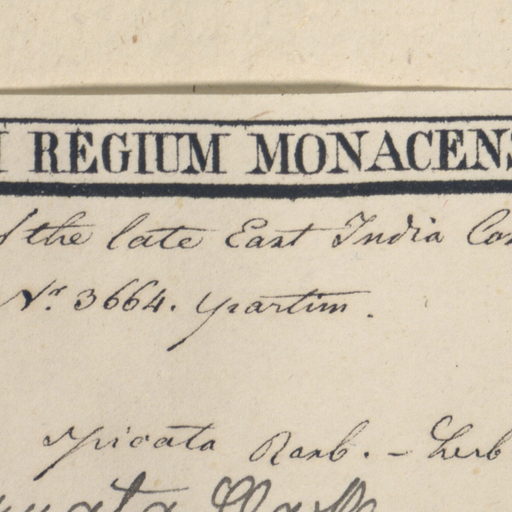 REGIUM MONACENS
the late East India Co
Nr. 3664. partim.
spicata Roxb. - Herb